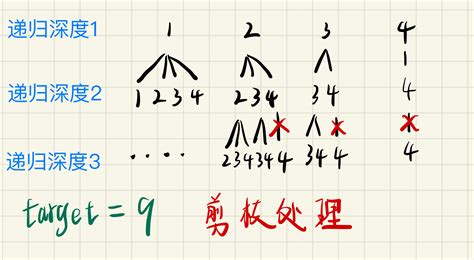 递归深度1 1 2 3 4
递归深度2 1 2 3 4 2 3 4 3 4 4
递归深度3 .... 2 3 4 3 4 4 3 4 4 4
target = 9 剪枝处理